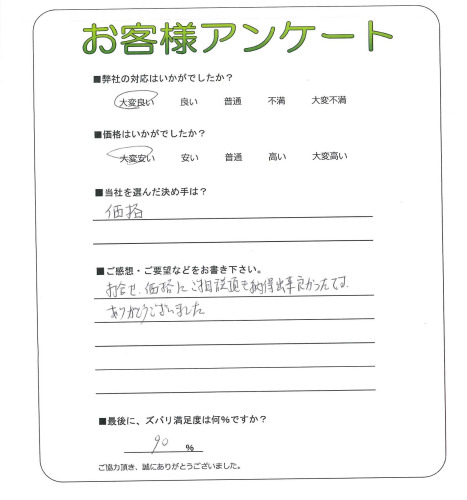 お客様アンケート
■弊社の対応はいかがでしたか？
大変良い 良い 普通 不満 大変不満
■価格はいかがでしたか？
大変安い 安い 普通 高い 大変高い
■当社を選んだ決め手は？
価格
■ご感想・ご要望などをお書き下さい。
価格に ご相談頂き納得出来良かったです。
ありがとうございました
■最後に、ズバリ満足度は何％ですか？
90 ％
ご協力頂き、誠にありがとうございました。